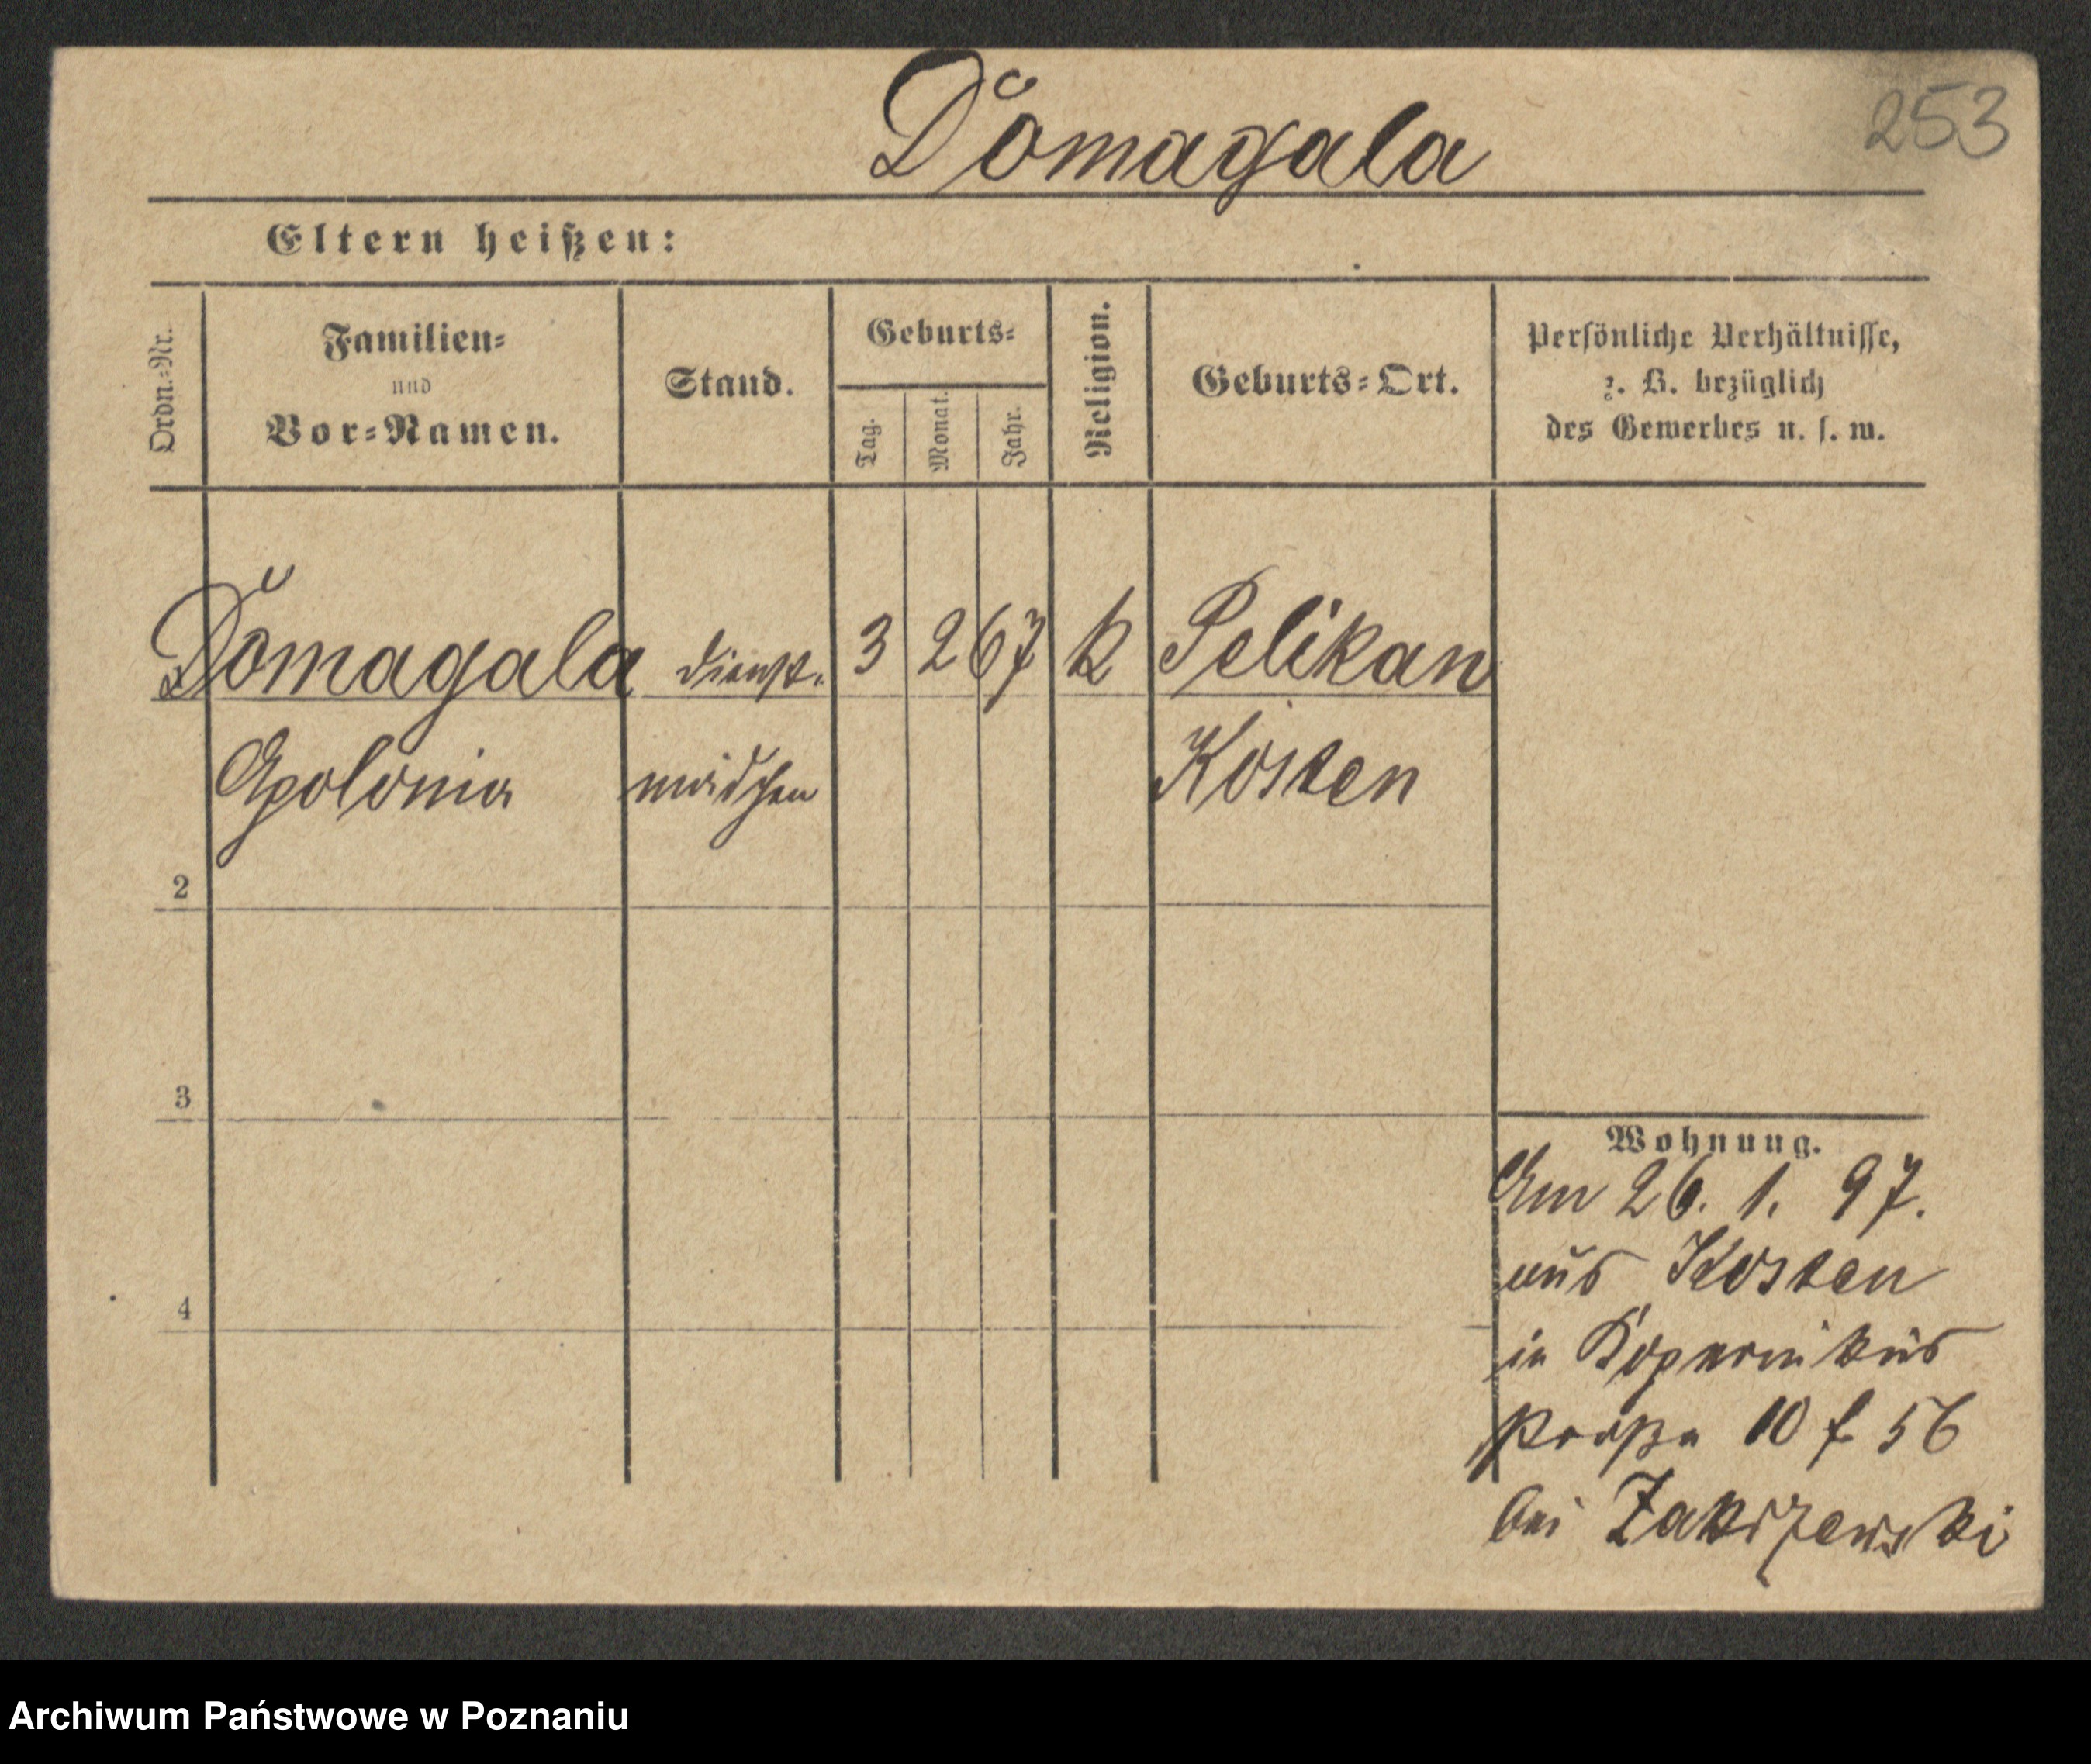 Domagala
253
Eltern heißen:
Ordn.-Nr.
Familien-
und
Vor-Namen.
Stand.
Geburts-
Tag.
Monat.
Jahr.
Religion.
Geburts-Ort.
Persönliche Verhältnisse,
z. B. bezüglich
des Gewerbes u. s. w.
Domagala dienst- 3 2 67 k Pelikan
Apolonia mädchen Kosten
2
3
4
Wohnung.
Am 26. 1. 97.
aus Kosten
in Kopernikus
straße 10 f 56
bei Zakrzewski
Archiwum Państwowe w Poznaniu